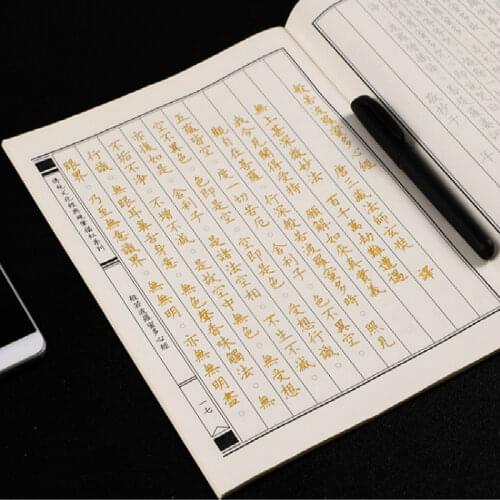 般若波羅蜜多心經 唐三藏法師玄奘 譯
無上甚深微妙法 百千萬劫難遭遇
我今見聞得受持 願解如來真實義
觀自在菩薩 行深般若波羅蜜多時 照見
五蘊皆空 度一切苦厄 舍利子 色不異空
空不異色 色即是空 空即是色 受想行識
亦復如是 舍利子 是諸法空相 不生不滅
不垢不淨 不增不減 是故空中無色 無受想
行識 無眼耳鼻舌身意 無色聲香味觸法 無
眼界 乃至無意識界 無無明 亦無無明盡
文化經典硬筆描紅系列
般若波羅蜜多心經
一七